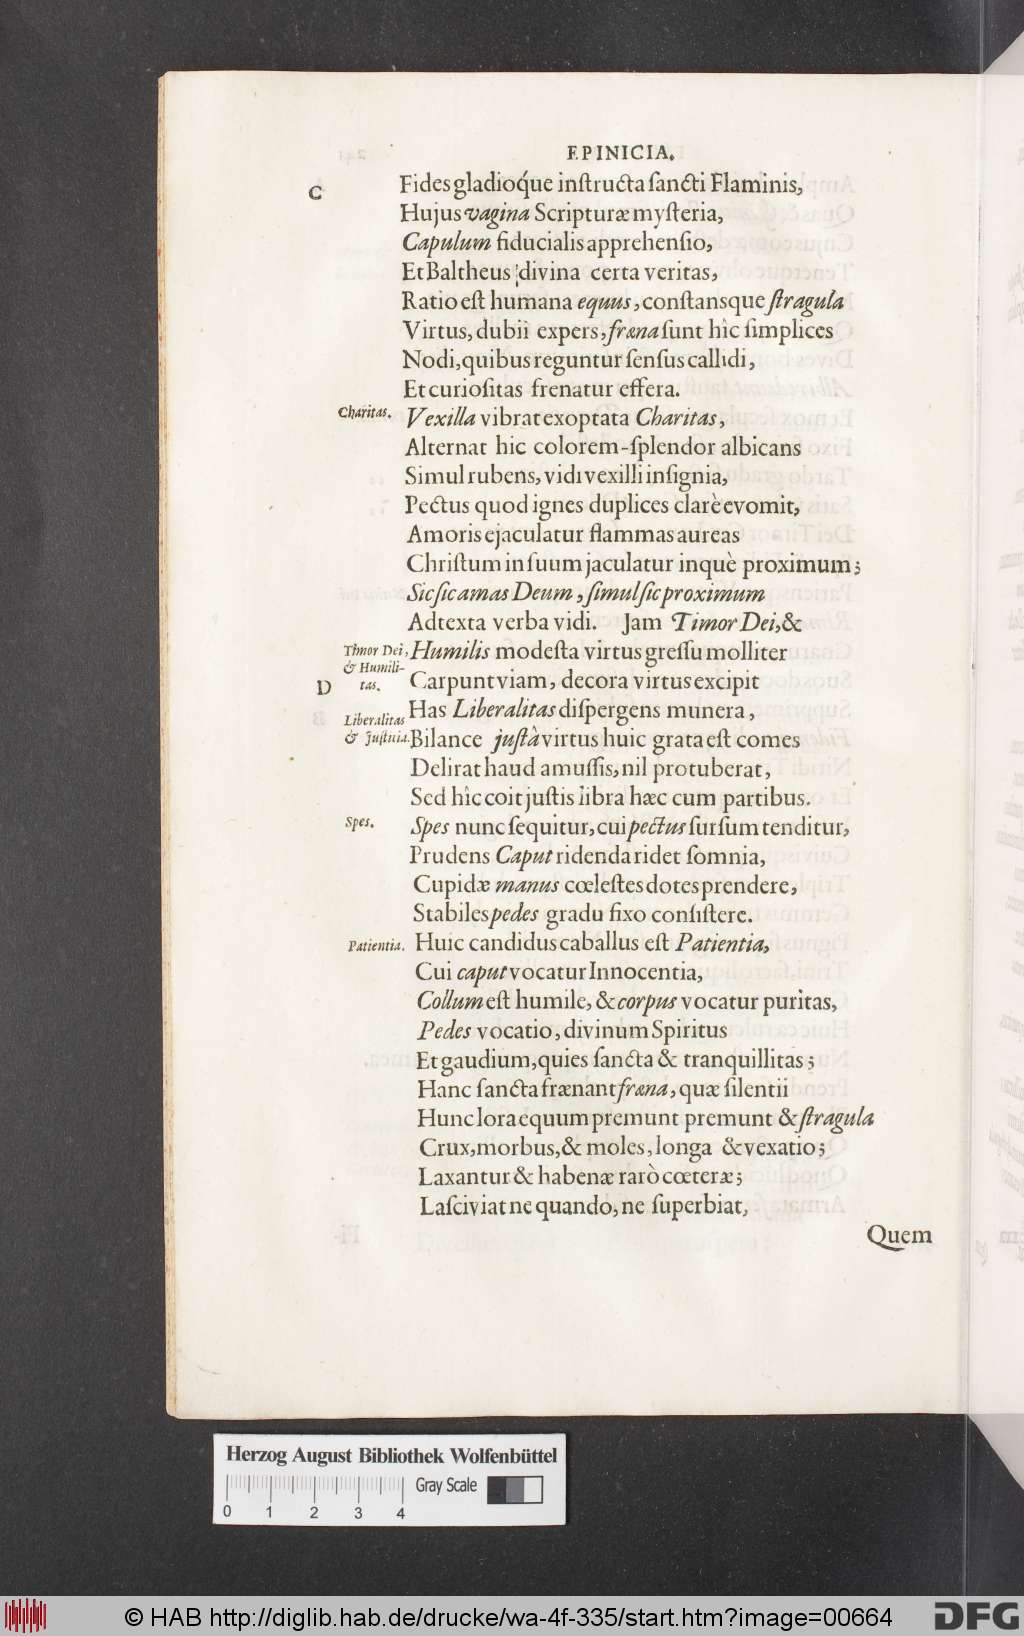 EPINICIA.
C
Fides gladioq́ue inſtructa ſancti Flaminis,
Hujus vagina Scripturæ myſteria,
Capulum fiducialis apprehenſio,
Et Baltheus divina certa veritas,
Ratio eſt humana equus, conſtansque ſtragula
Virtus, dubii expers, fræna ſunt hîc ſimplices
Nodi, quibus reguntur ſenſus callidi,
Et curioſitas frenatur effera.
Charitas.
Vexilla vibrat exoptata Charitas,
Alternat hic colorem-ſplendor albicans
Simul rubens, vidi vexilli inſignia,
Pectus quod ignes duplices clarè evomit,
Amoris ejaculatur flammas aureas
Chriſtum in ſuum jaculatur inquè proximum;
Sic ſic amas Deum, ſimul ſic proximum
Adtexta verba vidi. Jam Timor Dei, &
Timor Dei,
& Humili-
tas.
Humilis modeſta virtus greſſu molliter
D
Carpunt viam, decora virtus excipit
Liberalitas
& Juſtitia.
Has Liberalitas diſpergens munera,
Bilance juſtâ virtus huic grata eſt comes
Delirat haud amuſſis, nil protuberat,
Sed hîc coit juſtis libra hæc cum partibus.
Spes.
Spes nunc ſequitur, cui pectus ſurſum tenditur,
Prudens Caput ridenda ridet ſomnia,
Cupidæ manus cœleſtes dotes prendere,
Stabiles pedes gradu fixo conſiſtere.
Patientia.
Huic candidus caballus eſt Patientia,
Cui caput vocatur Innocentia,
Collum eſt humile, & corpus vocatur puritas,
Pedes vocatio, divinum Spiritus
Et gaudium, quies ſancta & tranquillitas;
Hanc ſancta frænant fræna, quæ ſilentii
Hunc lora equum premunt premunt & ſtragula
Crux, morbus, & moles, longa & vexatio;
Laxantur & habenæ rarò cœteræ;
Laſciviat ne quando, ne ſuperbiat,
Quem
Herzog August Bibliothek Wolfenbüttel
Gray Scale
0 1 2 3 4
© HAB http://diglib.hab.de/drucke/wa-4f-335/start.htm?image=00664
DFG